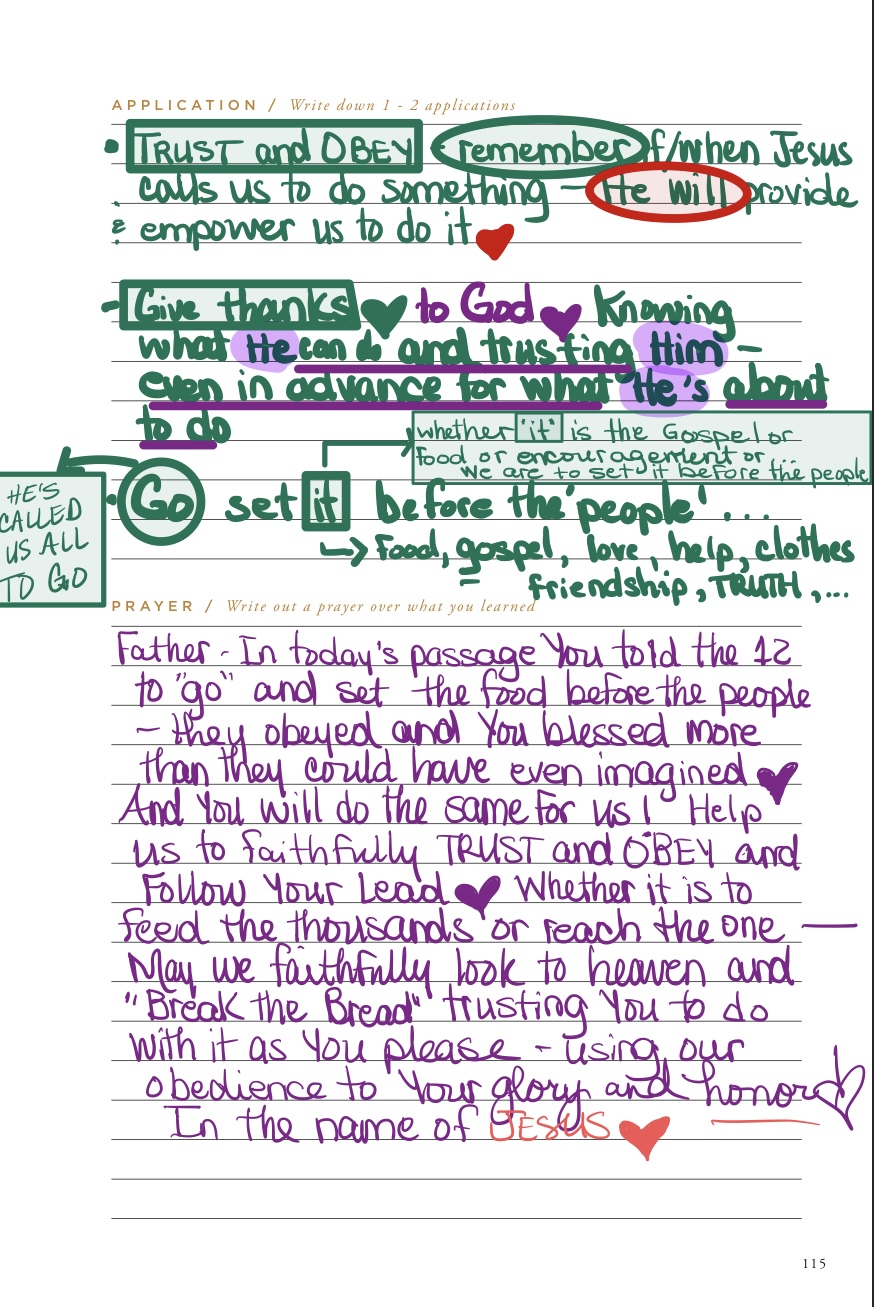 APPLICATION / Write down 1 - 2 applications
• TRUST and OBEY - remember if/when Jesus
calls us to do something — He will provide
& empower us to do it
- Give thanks to God Knowing
what He can do and trusting Him —
even in advance for what He's about
to do
whether "it" is the Gospel or
food or encouragement or...
we are to set it before the people
HE'S
CALLED
US ALL
TO GO
• Go set it before the 'people' ...
→ Food, gospel, love, help, clothes
friendship, TRUTH, ...
PRAYER / Write out a prayer over what you learned
Father - In today's passage You told the 12
to "go" and set the food before the people
— they obeyed and You blessed more
than they could have even imagined
And You will do the same for us! Help
us to faithfully TRUST and OBEY and
Follow Your Lead Whether it is to
feed the thousands or reach the one —
May we faithfully look to heaven and
"Break the Bread" trusting You to do
with it as You please - using our
obedience to Your glory and honor
In the name of JESUS
115